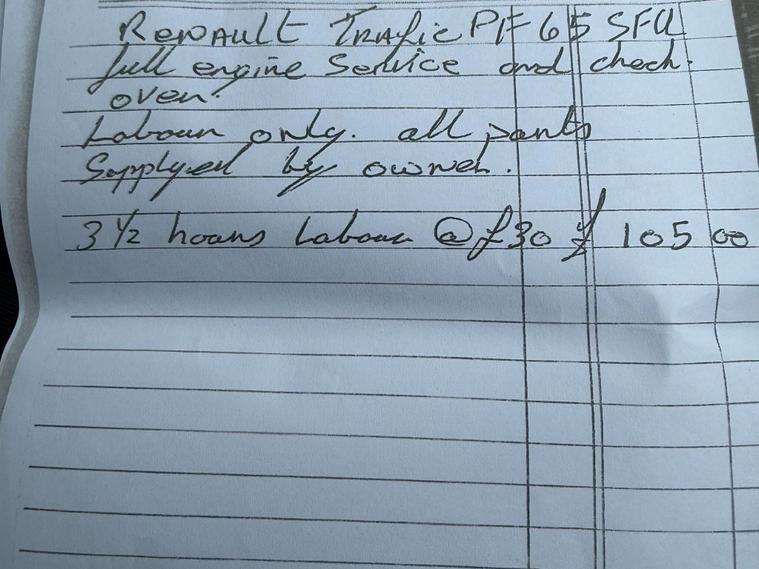 Renault Trafic PF65 SFU
full engine Service and check
over.
Labour only. all parts
Supplyed by owner.
3 1/2 hours Labour @ £30 £ 105 00